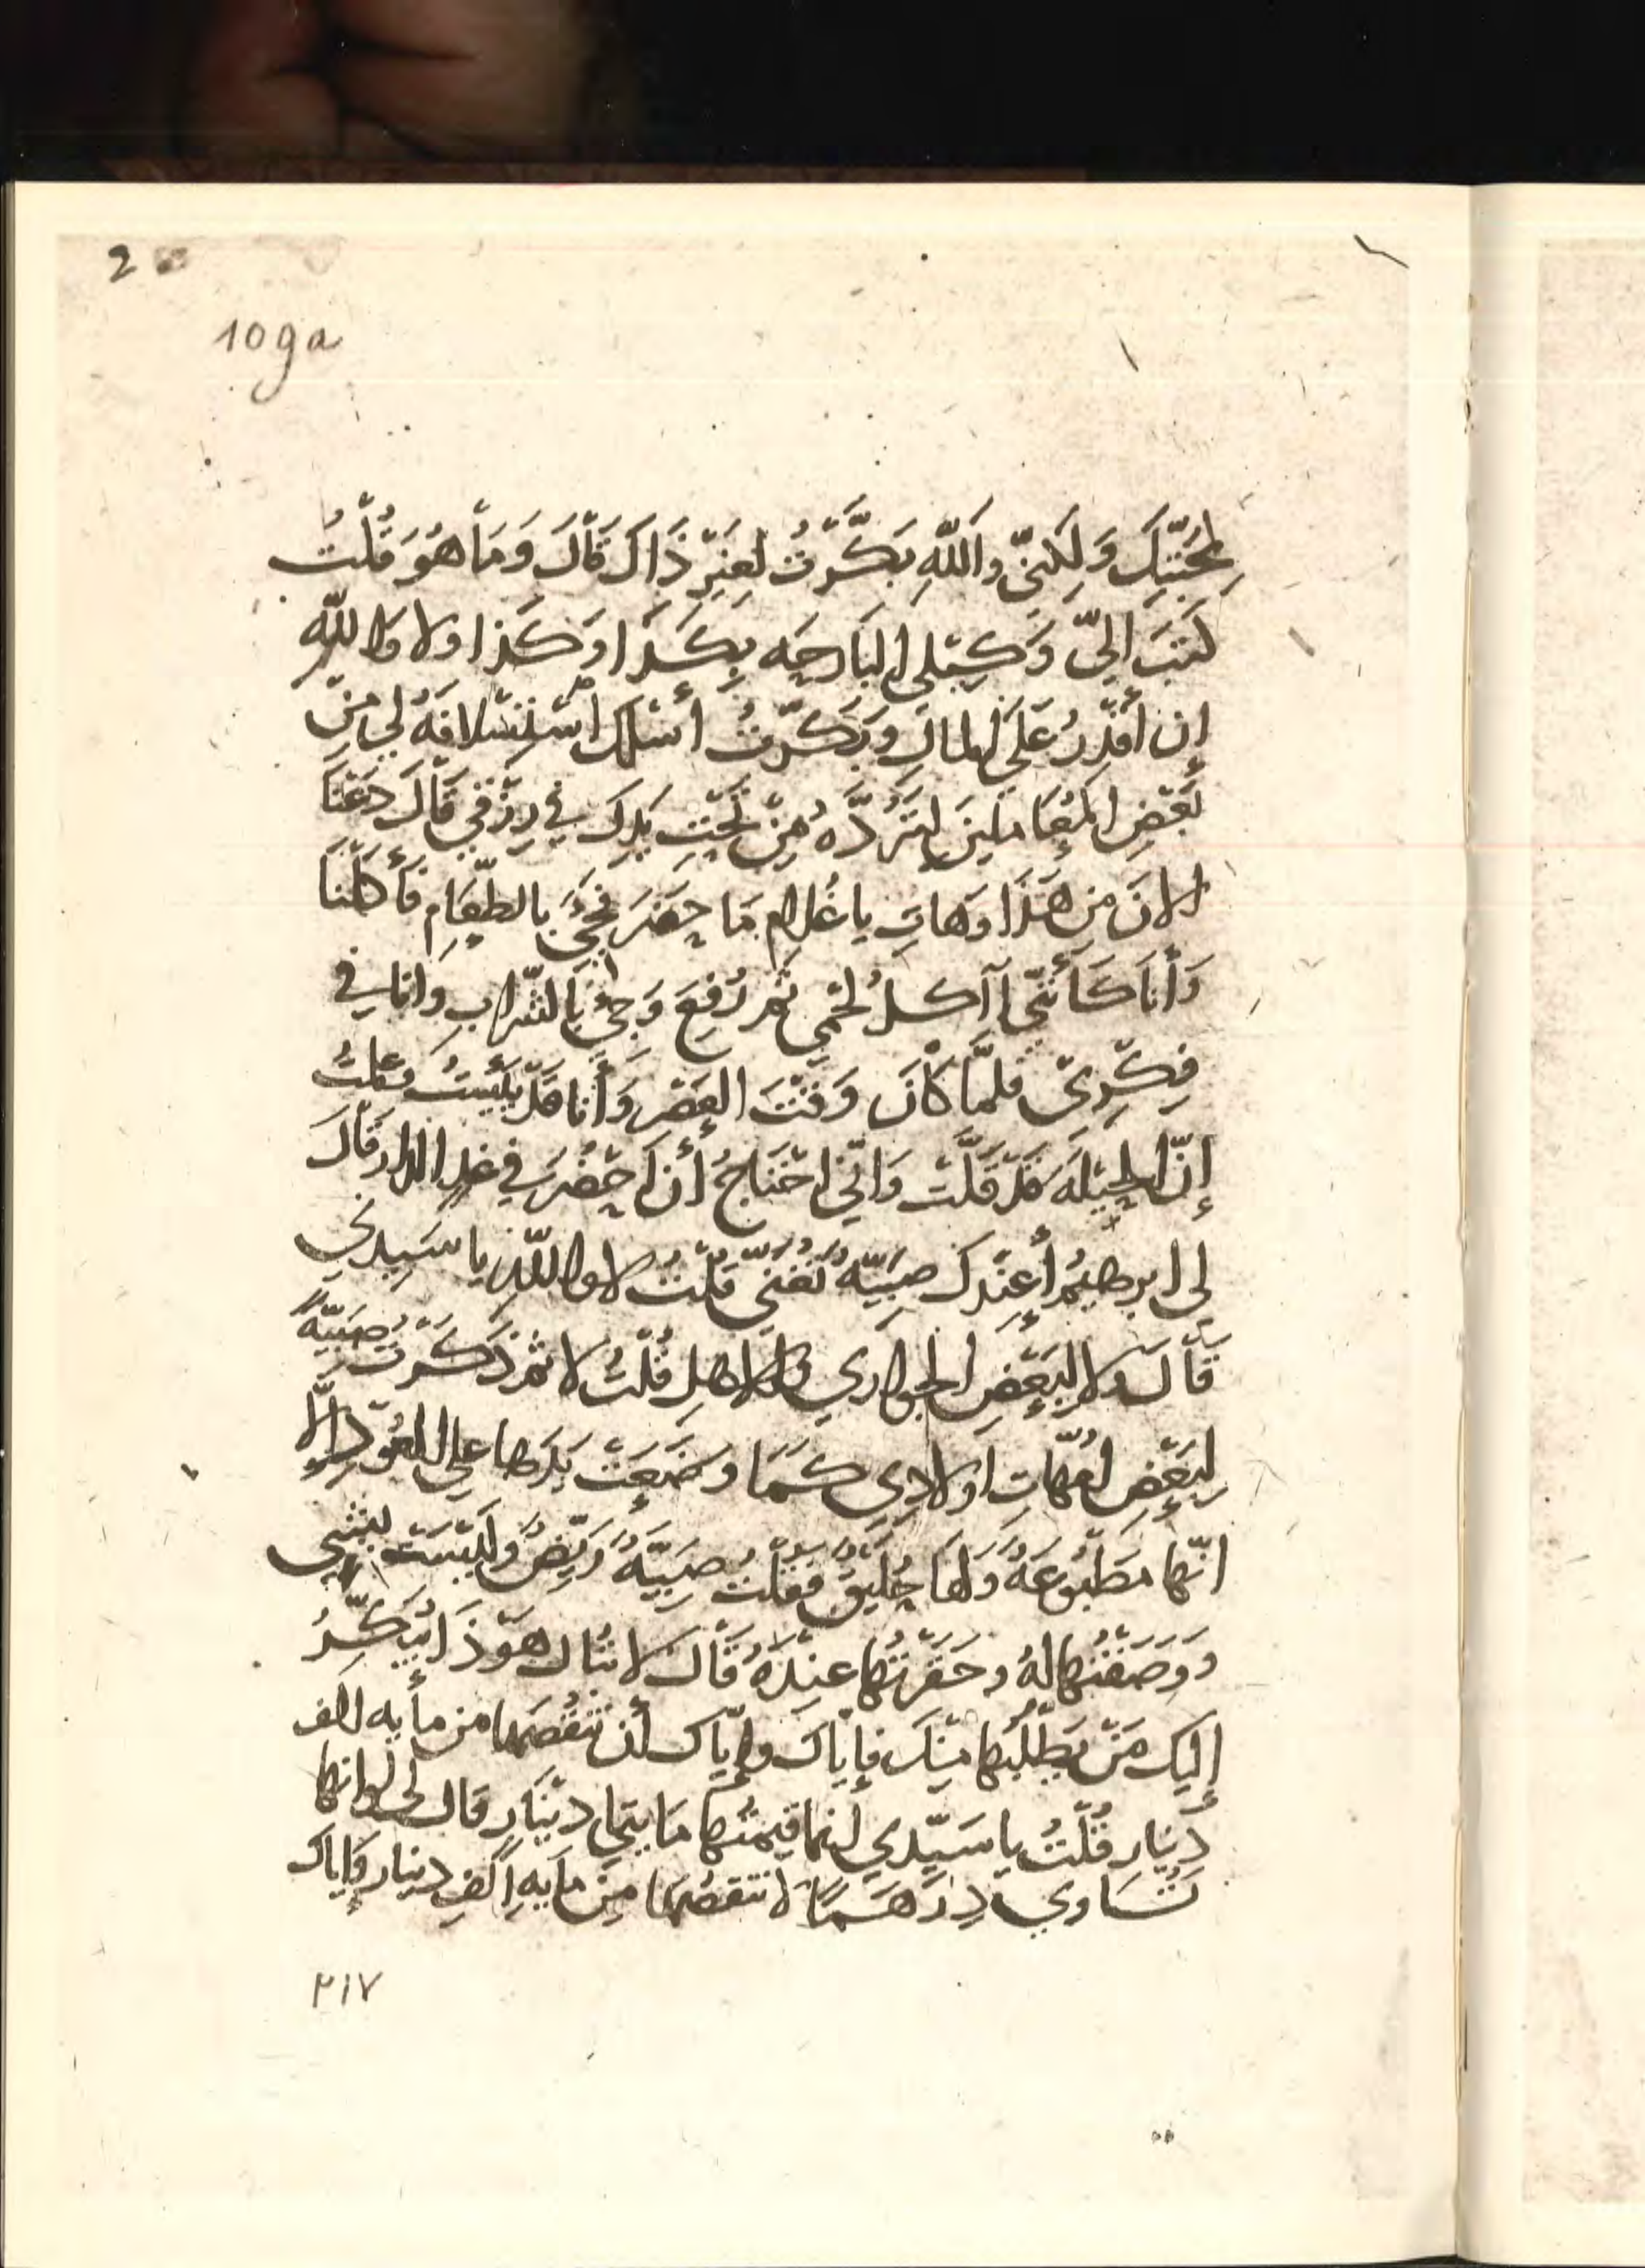 2
109a
لمحبتِّكَ وَلٰكِنّي واَللّهِ بَكَّرْتُ لِغَيْرِ ذَاكَ قَاْلَ وَمَاْ هُوَ قُلْتُ
كَتَبَ اليّ وَكِيْلي البَارحَه بِكَذَا وَكَذا ولا واللّهِ
إن أقْدِرُ عَلَى المالِ وَبَكَّرْتُ أسْلك لي مِنْ
بَعْضِ المُعَامِلينَ لِتَرُدَّهُ مِنْ تَحْتِ يَدِكَ في رِزْقي قَالَ دَعْنَا
الانَ مِن هَذَا وَهَاتِ يا غُلام مَا حَضَرَ فجيَ بالطّعَامِ فَأَكلْنَا
وَأنَا كَأنَّني اآكلُ لَحْمِي ثم رُفِعَ وَجيَ بَالشّرابِ وانا في
فِكْرِيْ فلمَّا كْاَنَ وَقْتَ العَصْرِ وَأَنا قَدْ يَئِسْتُ فقلتُ
إنّ الحِيْلَةَ قَدْ قَلَّتْ وَانّي احْتَاجُ أن احْضُرَ في غدٍ الدار قَالَ
لي ابرهيمُ أعِنْدكَ صبيّةٌ تُغَنّي قُلْتُ لا واللّهِ يا سَيِدي
قَاْلَ ولا لِبَعْضِ الجواري والاهلِ قُلْتُ لا ثم ذَكَرْتُ صَبِيّةً
لِبَعْضِ اُمّهاتِ اولادِي كَمَا وضَعَتْ يَدَها على العُوْدِ إلّا
انّها مَطْبُوعَةٌ وَلَها حُلَيْقٌ فَقُلْتُ صَبِيّةٌ رَيِّضٌ وَليْسَتْ بشي
وَوَصَفْتُها لهُ وحَقَّرْتُها عنِدَهُ قَاْلَ لا تُبَال هوَ ذَا يُبَكِّرُ
إليكَ مَنْ يَطْلُبُها مِنْكَ فإيّاكَ وإيّاك أن تَنْقُصَها من مأيه الف
دِينار قُلْتُ يا سَيّدي إنما قيمتُها مَايتي دينَارٍ قال لي لوانها
تُسَاوي دِرْهَمًا لا تنقصُها مِنْ مايَهِ اَلفِ دينار وَإياكَ
٢١٧